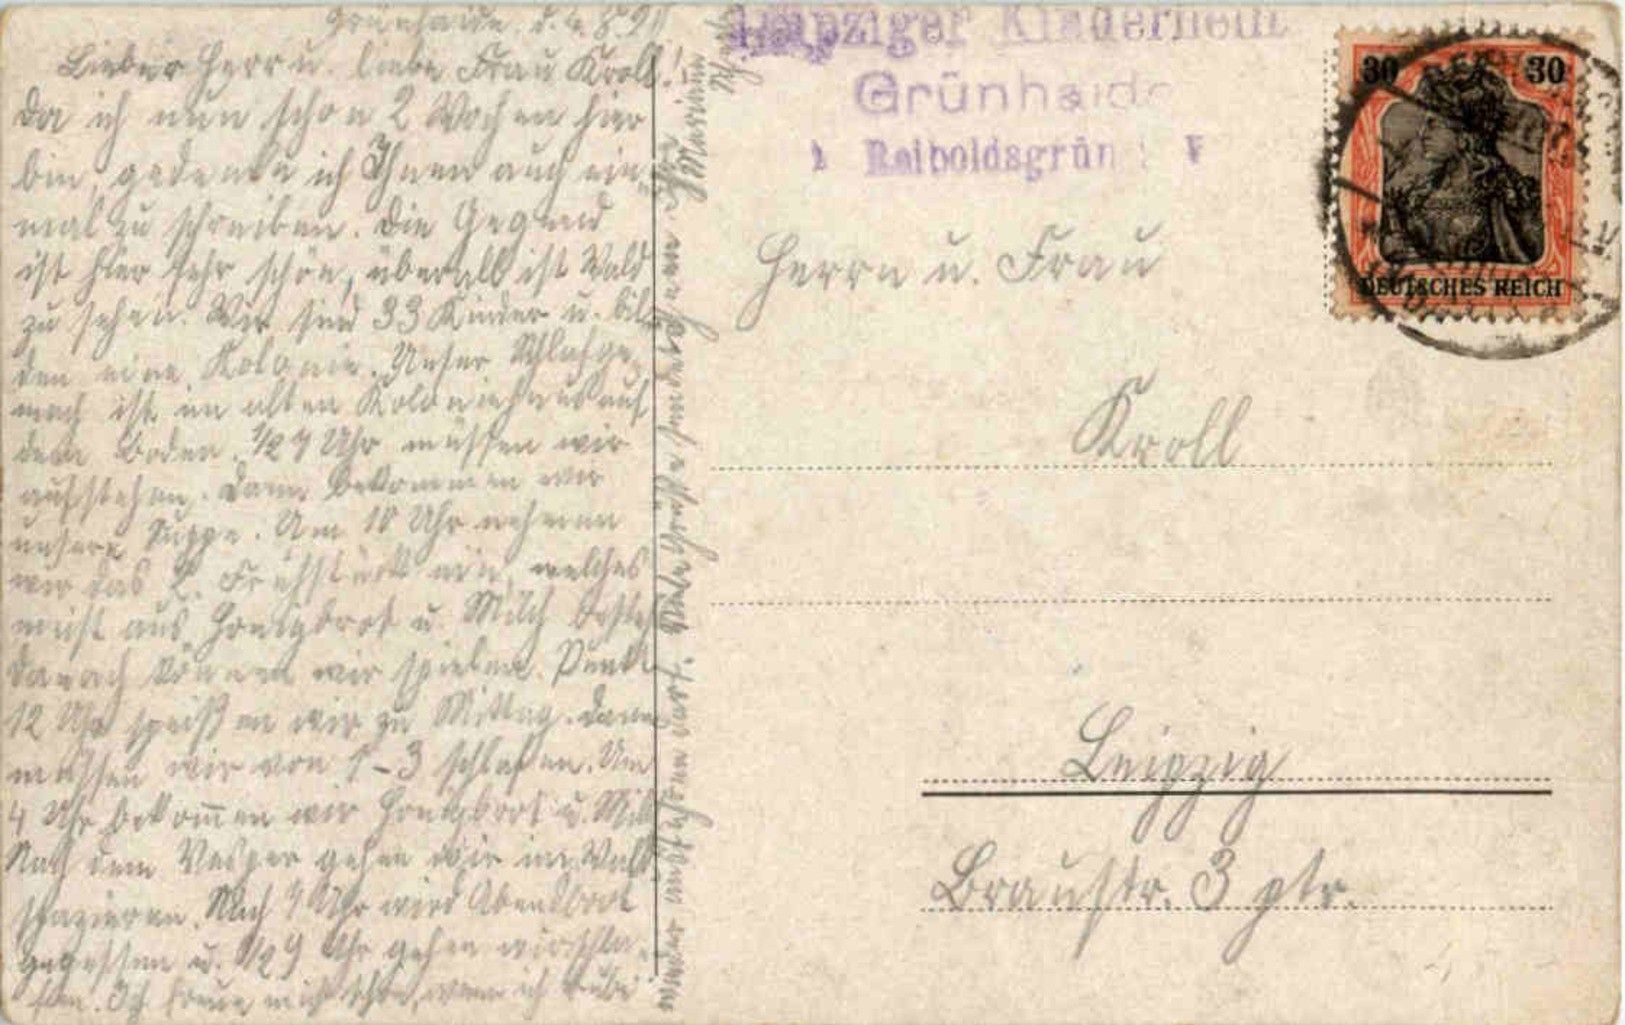 Grünhaide, d.
Lieber Herr u. liebe Frau Kroll!
Da ich nun schon 2 Wochen hier
bin, gedenke ich Ihnen auch ein-
mal zu schreiben. Die Gegend
ist hier sehr schön, überall ist Wald
zu sehen. Wir sind 33 Kinder u. bil-
den eine Kolonie. Unser Schlafge-
mach ist im alten Koloniehaus auf
dem Boden. 1/2 7 Uhr müssen wir
aufstehen. Dann bekommen wir
unsere Suppe. Um 10 Uhr nehmen
wir das 2. Frühstück ein, welches
meist aus Honigbrot u. Milch besteht
danach können wir spielen. Punkt
12 Uhr speißen wir zu Mittag. Dann
müssen wir von 1-3 schlafen. Um
4 Uhr bekommen wir Honigbrot u. Milch
Nach dem Vesper gehen wir im Wald
spazieren. Nach 7 Uhr wird Abendbrot
gegessen u. 1/2 9 Uhr gehen wir schla-
fen. Ich freue mich schon, wenn ich
Leipziger Kinderheim
Grünhaide
b Reiboldsgrün i. V
30 30
DEUTSCHES REICH
Herrn u. Frau
Kroll
Leipzig
Braustr. 3 ptr.